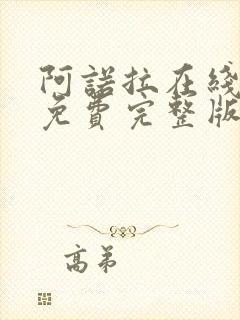 阿諾拉在綫
免費完整版
高弟